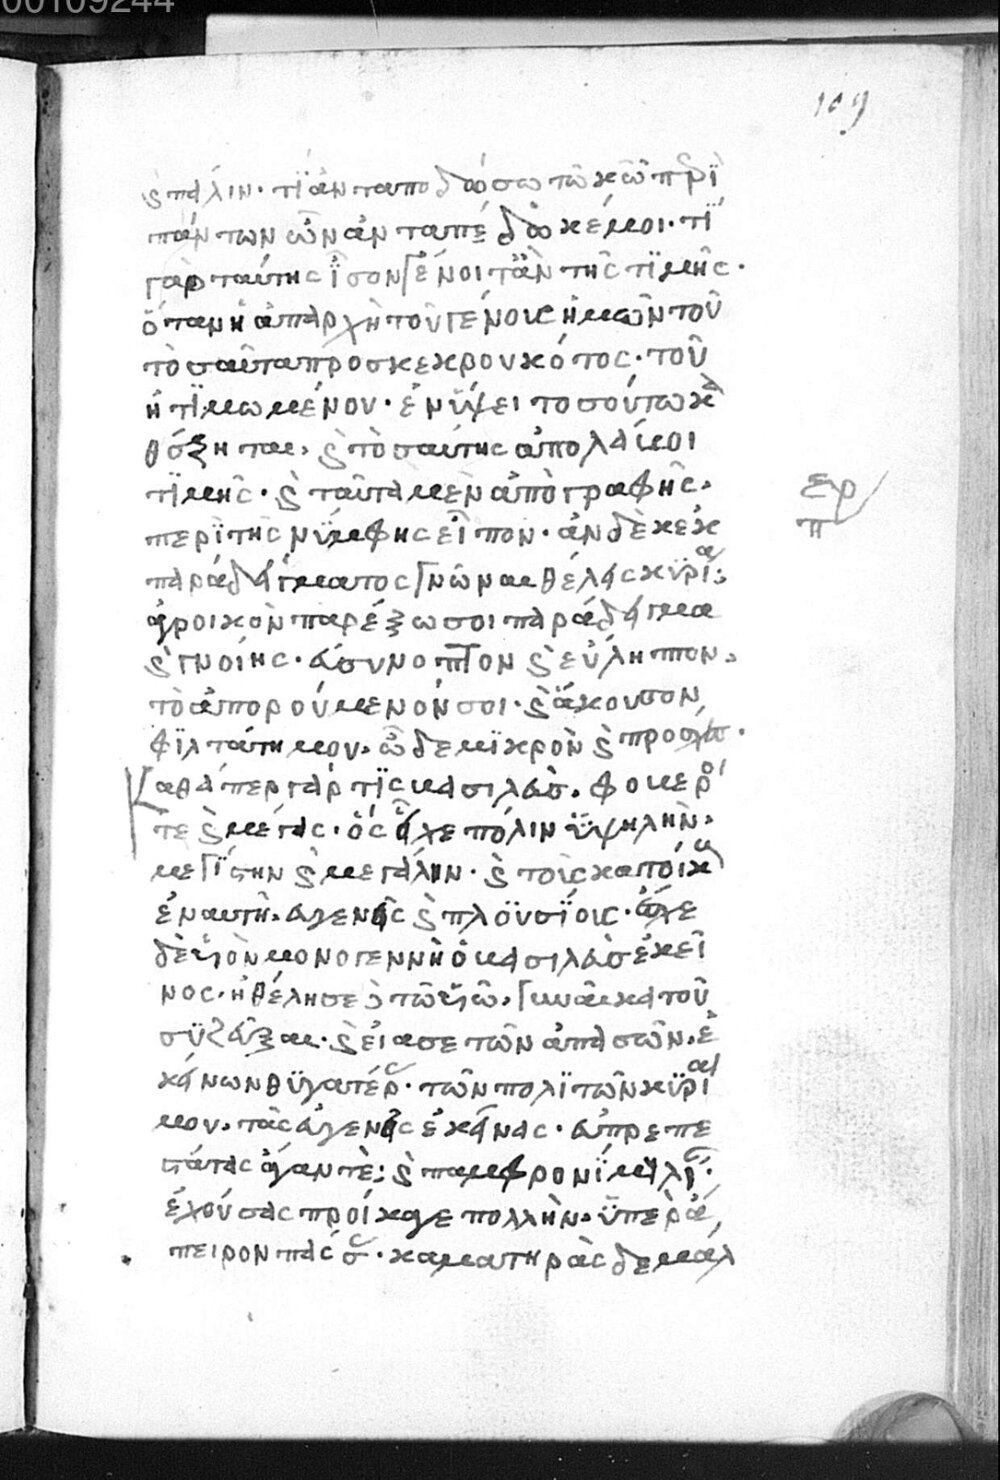 00109244
109
ϛ πάλιν· τΐ ἀνταποδώσω τῶ κῶ περῒ
πάντων ὧν ἀνταπέδωκέ μοι· τΐ
γὰρ ταύτης ἶσον γένοιτ' ἂν τῆς τϊμῆς·
ὅταν ἡ ἀπαρχὴ τοῦ γένους ἡμῶν τοῦ
τοσαῦτα προσκεκρουκότος· τοῦ
ἠτϊμωμένου· ἐν ὕψει τοσούτω κα
θέζηται, ϛ τοσαύτης ἀπολαύοι
τϊμῆς· ϛ ταῦτα μὲν ἀπὸ γραφῆς,
περῒ τῆς νύμφης εἶπον· ἂν δὲ κἐκ
ερ
π
παραδείγματος γνῶναι θέλεις κϋρία;
ἄγροικον παρέξω σοι παράδειγμα
ϛ γνοίης· εὐσύνοπτον ϛ εὔληπτον,
τὸ ἀπορούμενόν σοι· ϛ ἄκουσον,
φϊλτάτη μου, ὧδε μϊκρὸν ϛ πρόσχες·
Καθάπερ γάρ τϊς βασιλεὺς, φοβερός
τε ϛ μέγας· ὃς εἶχε πόλιν ὑψηλὴν,
μεγΐστην ϛ μεγάλην· ϛ τοὺς κατοίκους
ἐν αυτῆ, εὐγενεῖς ϛ πλουσΐοις· εἶχε
δὲ υἱὸν μονογεννῆ ὁ βασιλεὺς ἐκεῖ
νος· ἠθέλησε ϛ τῶ υἱῶ, γυναῖκα τοῦ
συζεῦξαι· ϛ εἴασε τῶν ἁπασῶν, ἐ
κείνων θϋγατέρας· τῶν πολϊτῶν κϋρία
μου, τὰς εὐγενεῖς ἐκείνας· εὐπρεπε
στάτας ἄγαν τὲ; ϛ παμφρονΐμους λίαν·
ἐχούσας προίκαγε πολλὴν, ὑπὲρ ἄ,
πειρον πάσας· καματηρὰς δὲ μάλ